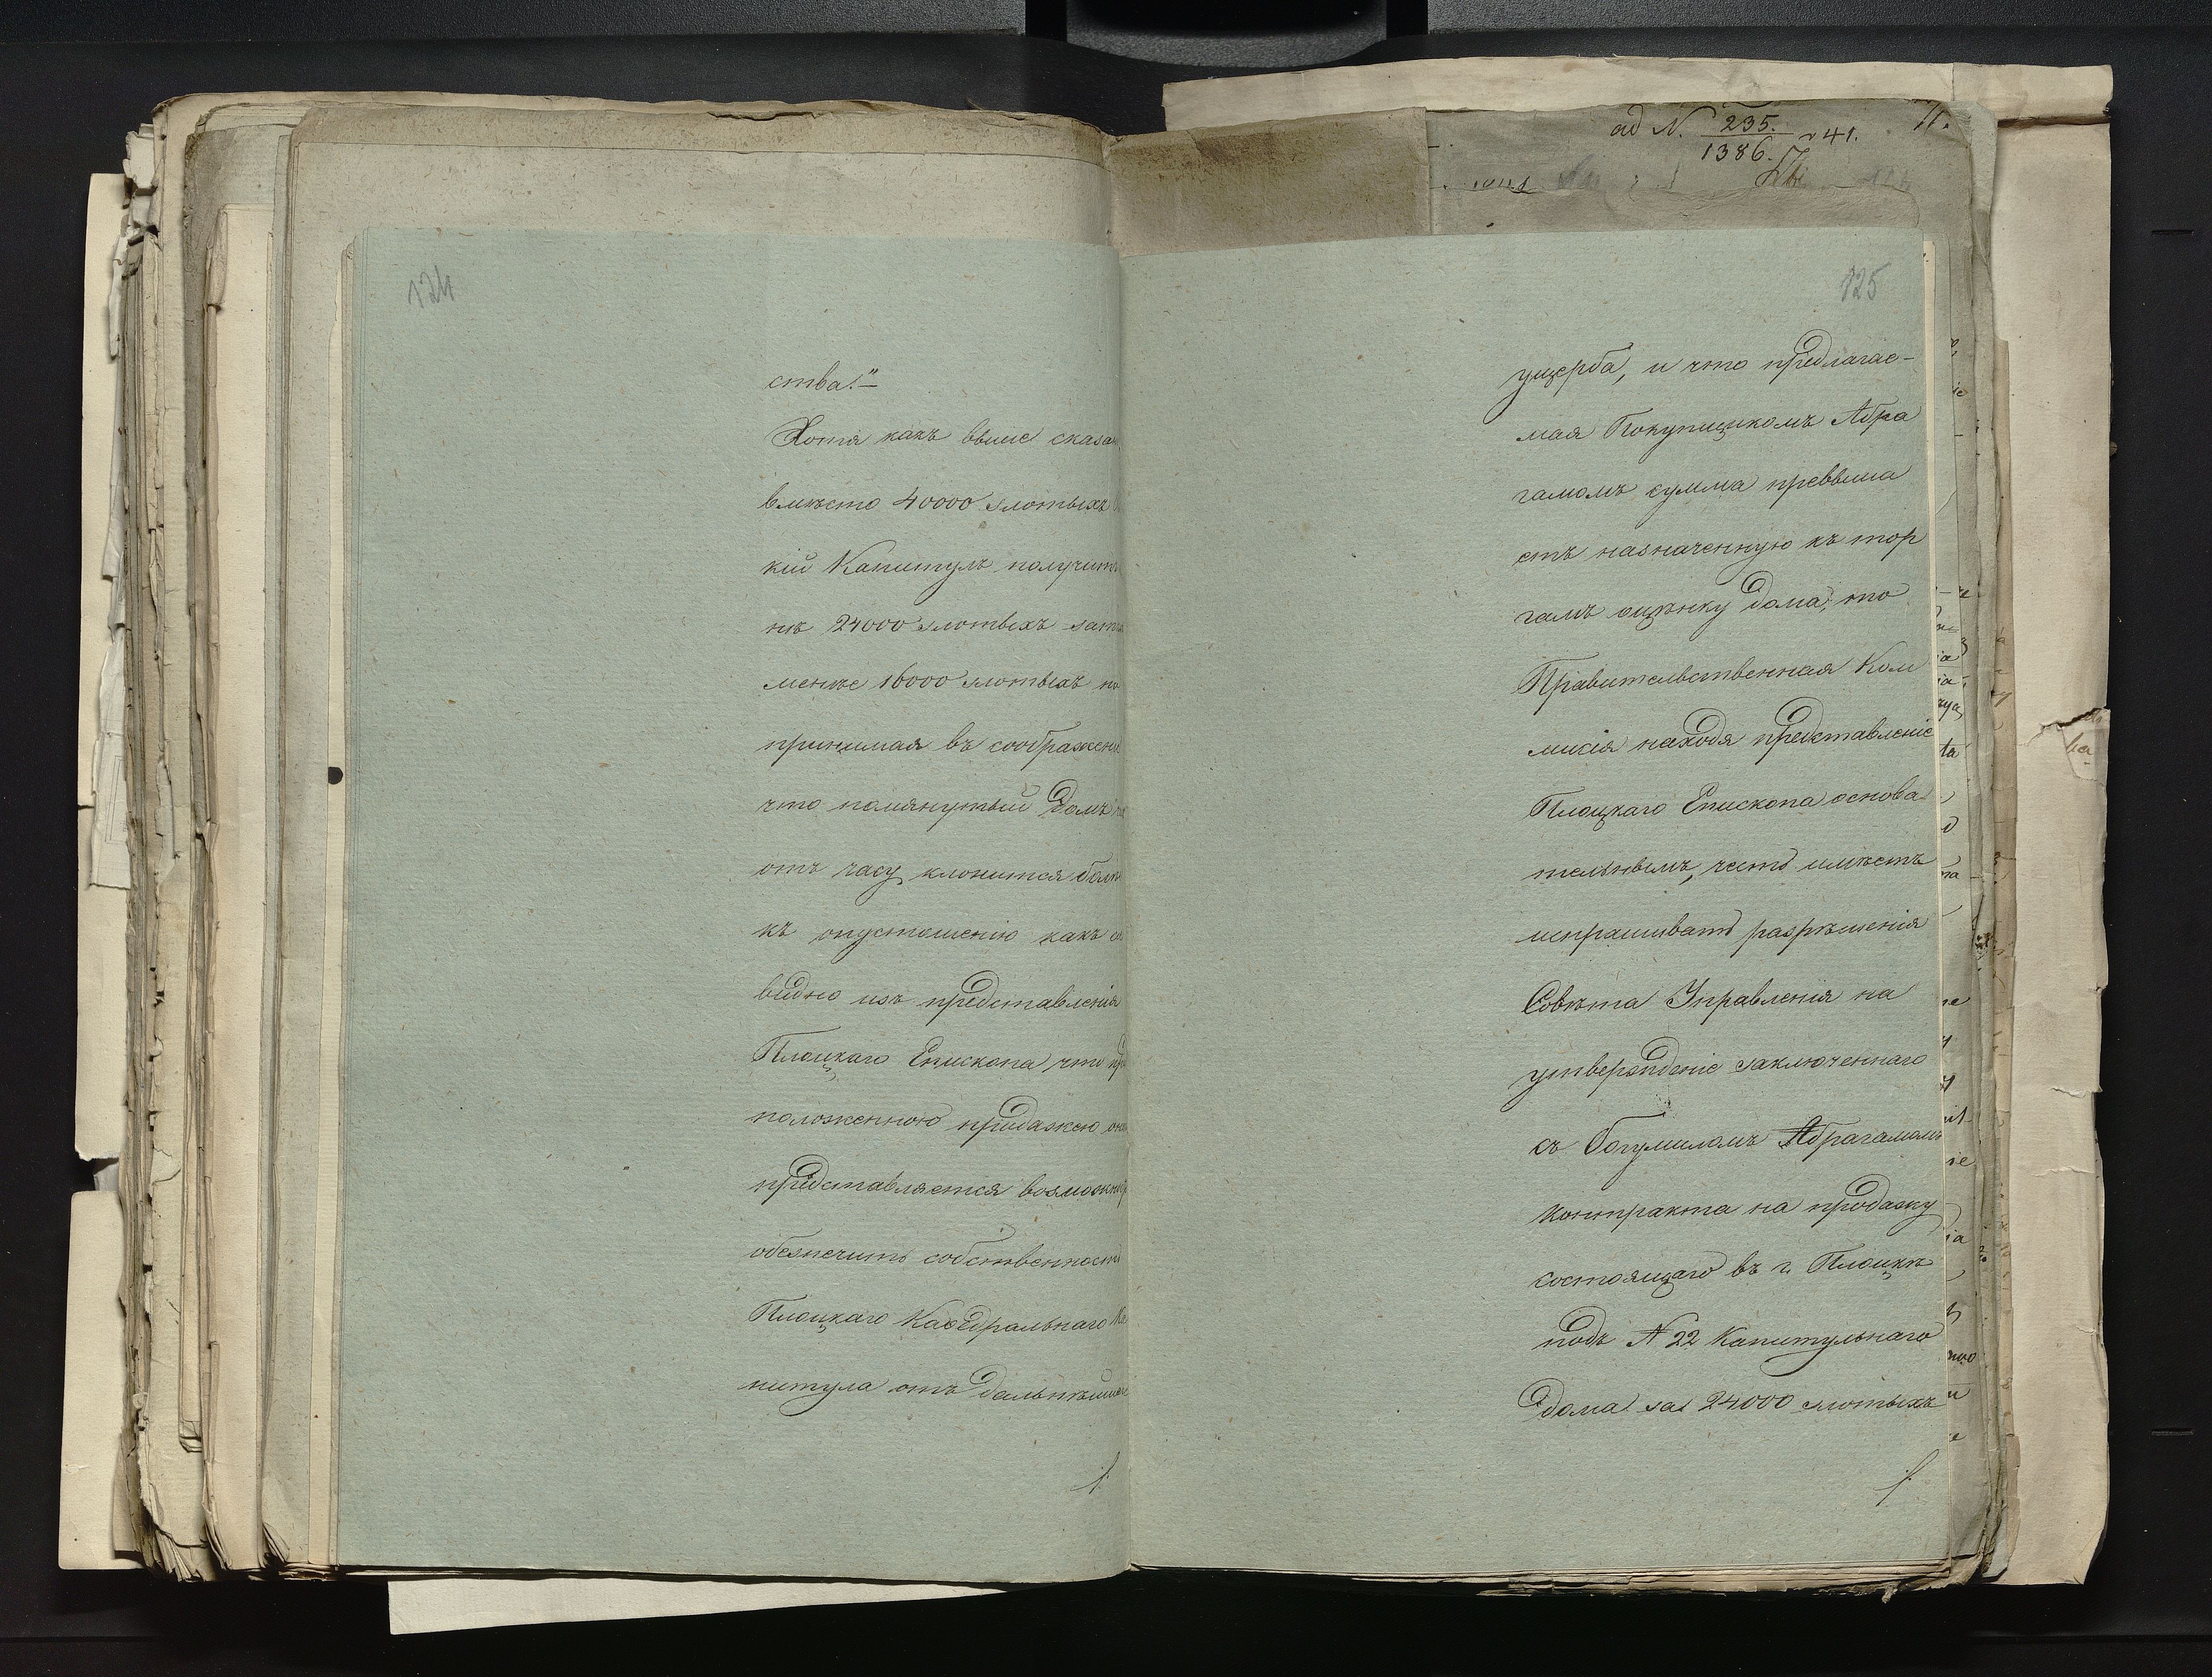 124
ства."—
Хотя какъ выше сказа
вмѣсто 40000 злотыхъ
кій Капитулъ получитъ
нѣ 24000 злотыхъ зат
менѣе 16000 злотыхъ но
принимая въ соображені
что помянутый Домъ
отъ часу клонится бол
къ опустошенію какъ
видно изъ представленія
Плоцкаго Епископа что пр
положенною продажею
представляется возможно
обезпечить собственность
Плоцкаго Каѳедральнаго Ка
питула отъ дальнѣйш
ad N. 235./1386. 41.
125
ущерба, и что предлагае-
мая Покупщикомъ Абра
гамомъ сумма превыша
етъ назначенную къ тор
гамъ оцѣнку дома, то
Правительственная Ком
мисія находя представленіе
Плоцкаго Епископа основа-
тельнымъ, честь имѣетъ
испрашивать разрѣшенія
Совѣта Управленія на
утвержденіе заключеннаго
съ Богумиломъ Абрагамомъ
контракта на продажу
состоящаго въ г. Плоцкѣ
подъ N 22 Капитульнаго
дома за 24000 злотыхъ